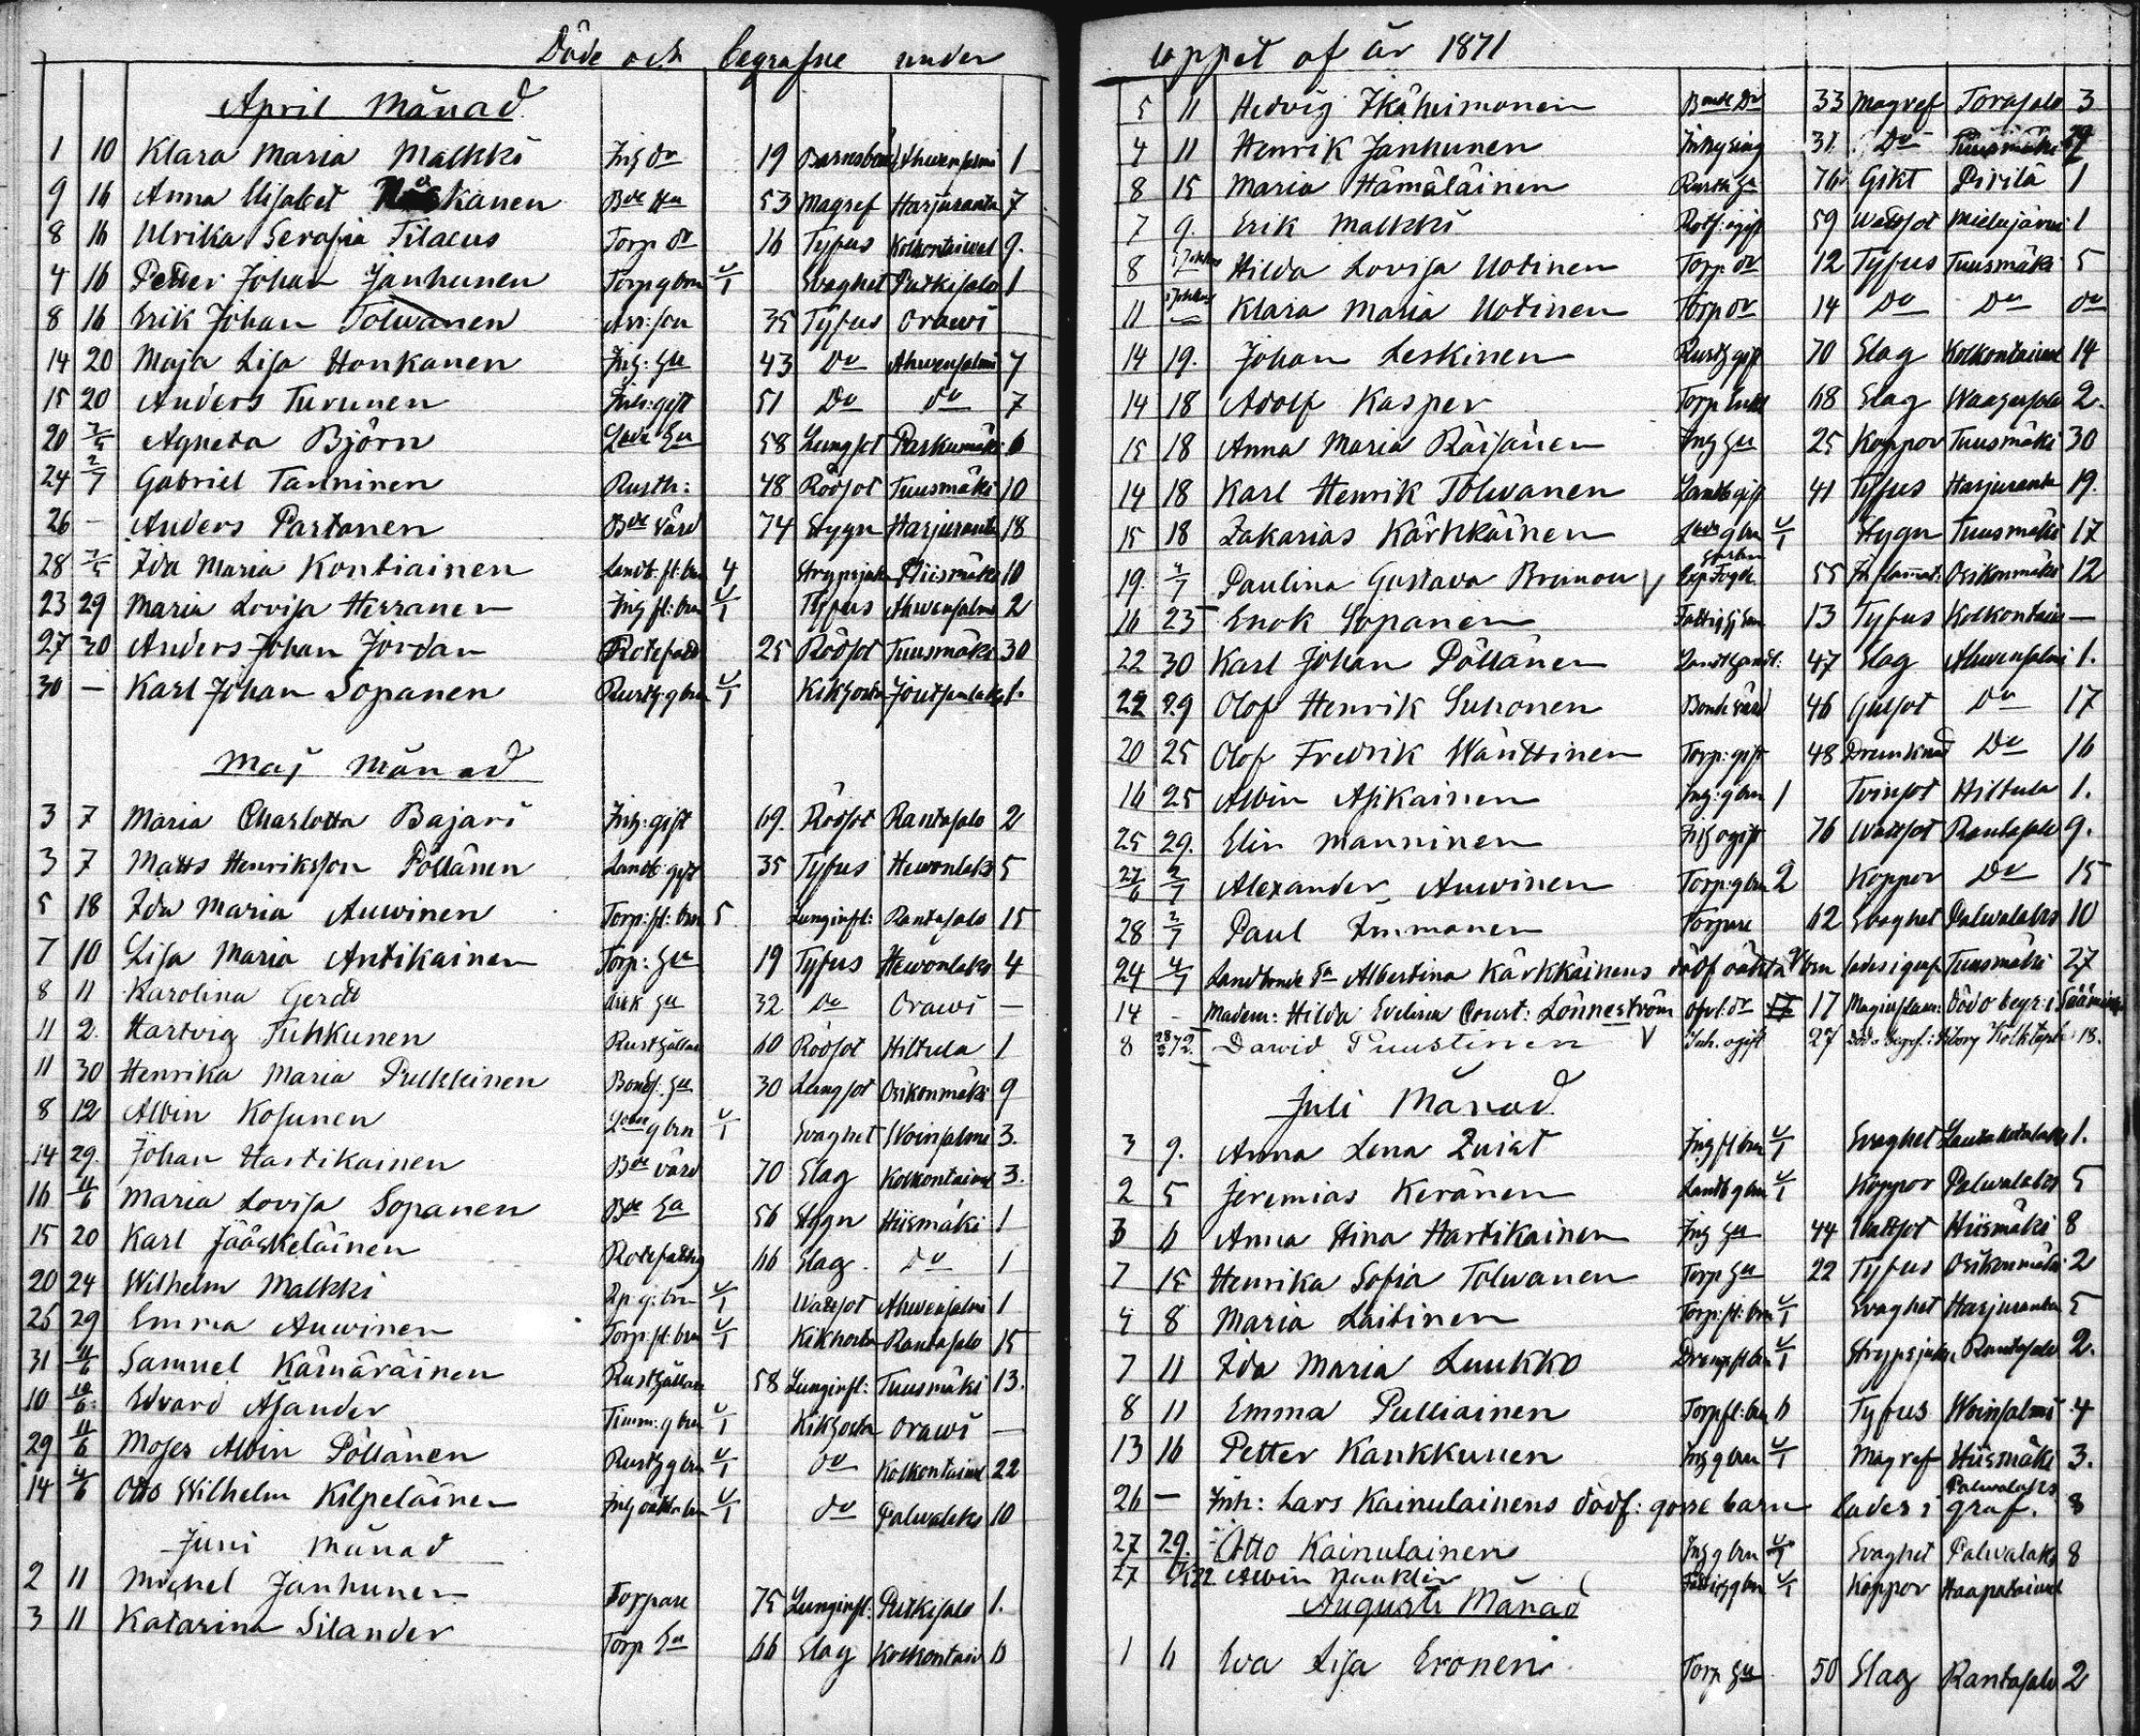 Döde och begrafne under
April Månad
1 10 Klara Maria Malkki Inh dr 19 Barnsbörd Ahvensalmi 1
9 16 Anna Elisabet kanen Bde Hu 53 Magref Harjuranta 7
8 16 Ulrika Serafia Tilaeus Torp dr 16 Tyfus Kolkontaival 9.
4 16 Petter Johan Janhunen Torp g brn 4/1 Svaghet Putkisalo 1
8 16 Erik Johan Tolwanen Arr: son 35 Tyfus Orawi
14 20 Maja Lisa Honkanen Inh: hu 43 Do Ahvensalmi 7
15 20 Anders Turunen Inh: gift 51 Do do 7
20 7/5 Agneta Björn hu 58 Lungsot Paskumäki 6
24 2/7 Gabriel Tanninen Rusth: 48 Rödsot Tuusmäki 10
26 – Anders Partanen Bde värd 74 Stygn Harjuranta 18
28 7/5 Ida Maria Kontiainen Landb. fl: brn 4 Strypsjuk Hiismäki 10
23 29 Maria Lovisa Herranen Inh fl: brn 4/1 Tyfus Ahvensalmi 2
27 30 Anders Johan Jordan Rotefatt 25 Rödsot Tuusmäki 30
30 – Karl Johan Sopanen Rusth: g brn 4/1 Kikhosta 1.
Maj Månad
3 7 Maria Charlotta Bajari Inh: gift 69. Rödsot Rantasalo 2
3 7 Matts Henriksson Pöllänen Landb: gift 35 Tyfus Hewonlaks 5
5 18 Ida Maria Auwinen Torp: fl: brn 5 Lunginfl: Rantasalo 15
7 10 Lisa Maria Antikainen Torp: hu 19 Tyfus Hewonlaks 4
8 11 Karolina Gerdt hu 32 do Orawi –
11 2. Hartvig Tuhkunen Rusthållare 60 Rödsot Hiltula 1
11 30 Henrika Maria Pulkkinen Bond. hu 30 Lungsot Osikonmäki 9
8 12 Albin Kosunen g brn 4/1 Svaghet Woinsalmi 3.
14 29. Johan Hartikainen Bde värd 70 Slag Kolkontaival 3.
16 11/6 Maria Lovisa Sopanen Bde ha 56 Stygn Hiismäki 1
15 20 Karl Jääskeläinen Rotefattig 66 Slag do 1
20 24 Wilhelm Malkki g: brn 4/1 Wattsot Ahvensalmi 1
25 29 Emma Auwinen Torp: fl: brn 4/1 Kikhosta Rantasalo 15
31 11/6 Samuel Kämäräinen Rusthållare 58 Lunginfl: Tuusmäki 13.
10 10/6 Edvard Åsander Timm: g brn 4/1 Kikhosta Orawi –
29 11/6 Moses Albin Pöllänen Rusth g brn 4/1 do Kolkontaival 22
14 4/6 Otto Wilhelm Kilpeläinen Inh oäkta brn 4/1 do Palvalaks 10
Juni Månad
2 11 Michel Janhunen Torpare 75 Lunginfl: Putkisalo 1.
3 11 Katarina Silander Torp hu 66 Slag Kolkontaiv 6
loppet af år 1871
5 11 Hedvig Ikäheimonen Bonde Dr 33 Magref Torasalo 3
4 11 Henrik Janhunen Inhysing 31. Do Tuusmäki 29
8 15 Maria Hämäläinen Rusth ha 76 Gikt Pirilä 1
7 9. Erik Malkki Rotf: ogift 59 Wattsot Mielujärvi 1
8 Hilda Lovisa Uotinen Torp dr 12 Tyfus Tuusmäki 5
11 Klara Maria Uotinen Torp dr 14 Do Do do
14 19. Johan Leskinen Rusth gift 70 Slag Kolkontaival 14
14 18 Adolf Kasper Torp Enkl 68 Slag Waagusalo 2.
15 18 Anna Maria Räisänen Inh hu 25 Koppor Tuusmäki 30
14 18 Karl Henrik Tolwanen Landb gift 41 Tyfus Harjuranta 19.
15 18 Zakarias Kärhkäinen g brn 4/1 Stygn Tuusmäki 17
19. 4/7 Paulina Gustava Brunou V 55 Inflammat: Osikonmäki 12
16 25 Enok Sopanen Fattighj son 13 Tyfus Kolkontaiv –
22 30 Karl Johan Pöllänen 47 Slag Ahvensalmi 1.
22 29 Olof Henrik Suhonen Bonde värd 46 Gulsot Do 17
20 25 Olof Fredrik Wänttinen Torp: gift 48 Drunknad Do 16
16 25 Albin Asikainen Inh: g brn 1 Tvinsot Hiltula 1.
25 29. Elin Manninen Inh ogift 76 Wattsot Rantasalo 9.
27/6 2/7 Alexander Auwinen Torp: g brn 2 Koppor Do 15
28 2/7 Paul Immonen Torpare 62 Svaghet Palvalaks 10
24 4/7 Landbonde dr Albertina Kärkkäinens dödf oäkta g brn lades i graf Tuusmäki 27
14 – Madem: Hilda Evelina Const: Lönneström dr 17 Maginflam: död o begr: i Sääminge
8 28/2 72. Dawid Puustinen V Inh. ogift 27 död o begrf: i Wiborg 18.
Juli Månad
3 9. Anna Lena Quist Inh fl brn 4/1 Svaghet Lautakotalaks 1.
2 5 Jeremias Keränen Landb g brn 4/1 Koppor Palvalaks 5
3 6 Anna Stina Hartikainen Inh hu 44 Wattsot Hiismäki 8
7 15 Henrika Sofia Tolwanen Torp hu 22 Tyfus Osikonmäki 2
4 8 Maria Laitinen Torp: fl: brn 4/1 Svaghet Harjuranta 5
7 11 Ida Maria Luukko Dreng fl brn 4/1 Strypsjuka Rantasalo 2.
8 11 Emma Pulliainen Torp fl: brn 6 Tyfus Woinsalmi 4
13 16 Petter Kankkunen Inh g brn 4/1 Magref Hiismäki 3.
26 – Inh: Lars Kainulainens dödf: gosse barn lades i graf. Palvalaks 8
27 29. Otto Kainulainen Inh g brn 4/1 Svaghet Palvalaks 8
27 Albin Nauklér Fattig g brn 4/1 Koppor Haapataival
Augusti Månad
1 6 Eva Lisa Eronen Torp hu 50 Slag Rantasalo 2